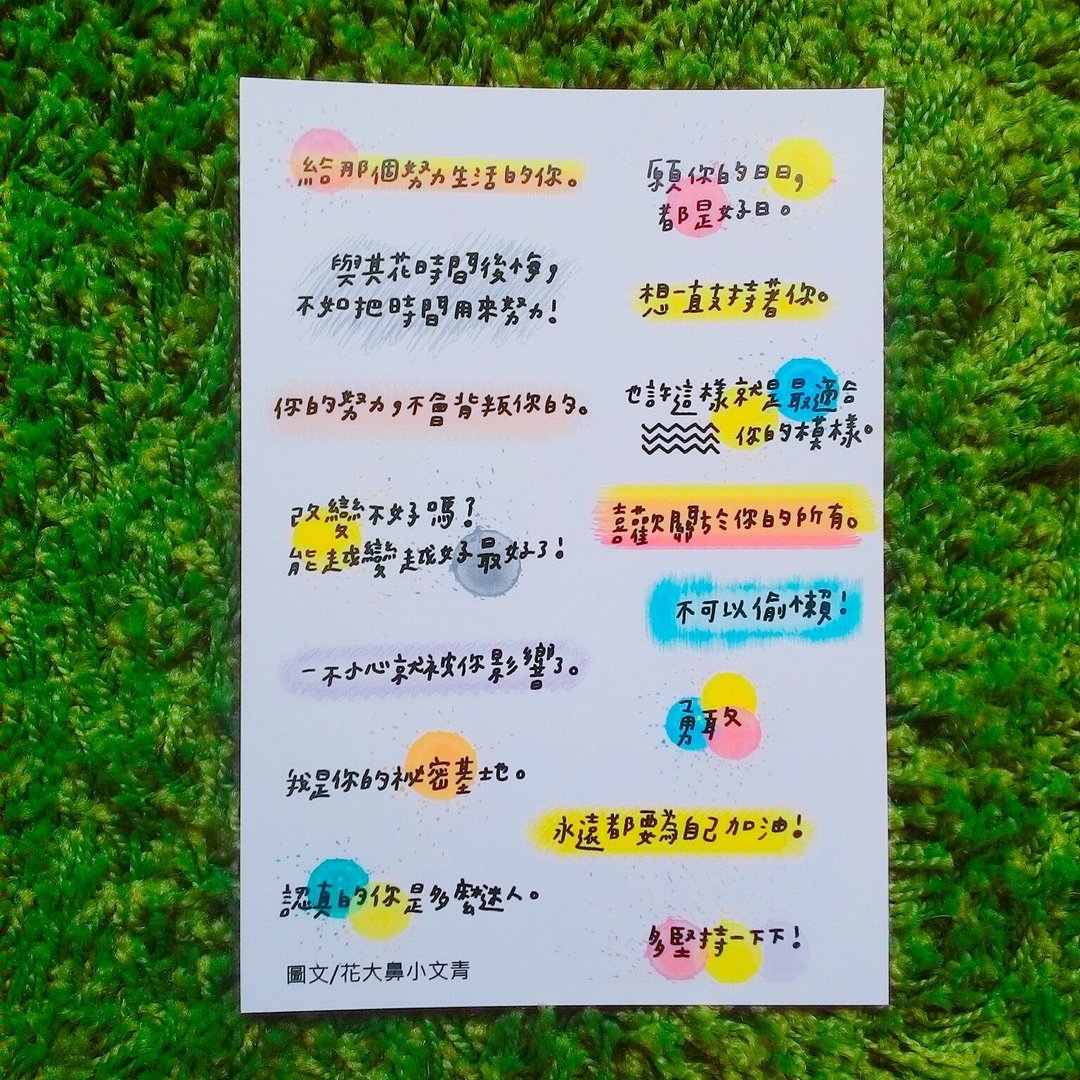 給那個努力生活的你。
與其花時間後悔，
不如把時間用來努力！
你的努力，不會背叛你的。
改變不好嗎？
能越變越好最好了！
一不小心就被你影響了。
我是你的祕密基地。
認真的你是多麼迷人。
圖文/花大鼻小文青
願你的日日，
都是好日。
想一直支持著你。
也許這樣就是最適合
你的模樣。
喜歡關於你的所有。
不可以偷懶！
勇敢
永遠都要為自己加油！
多堅持一下下！